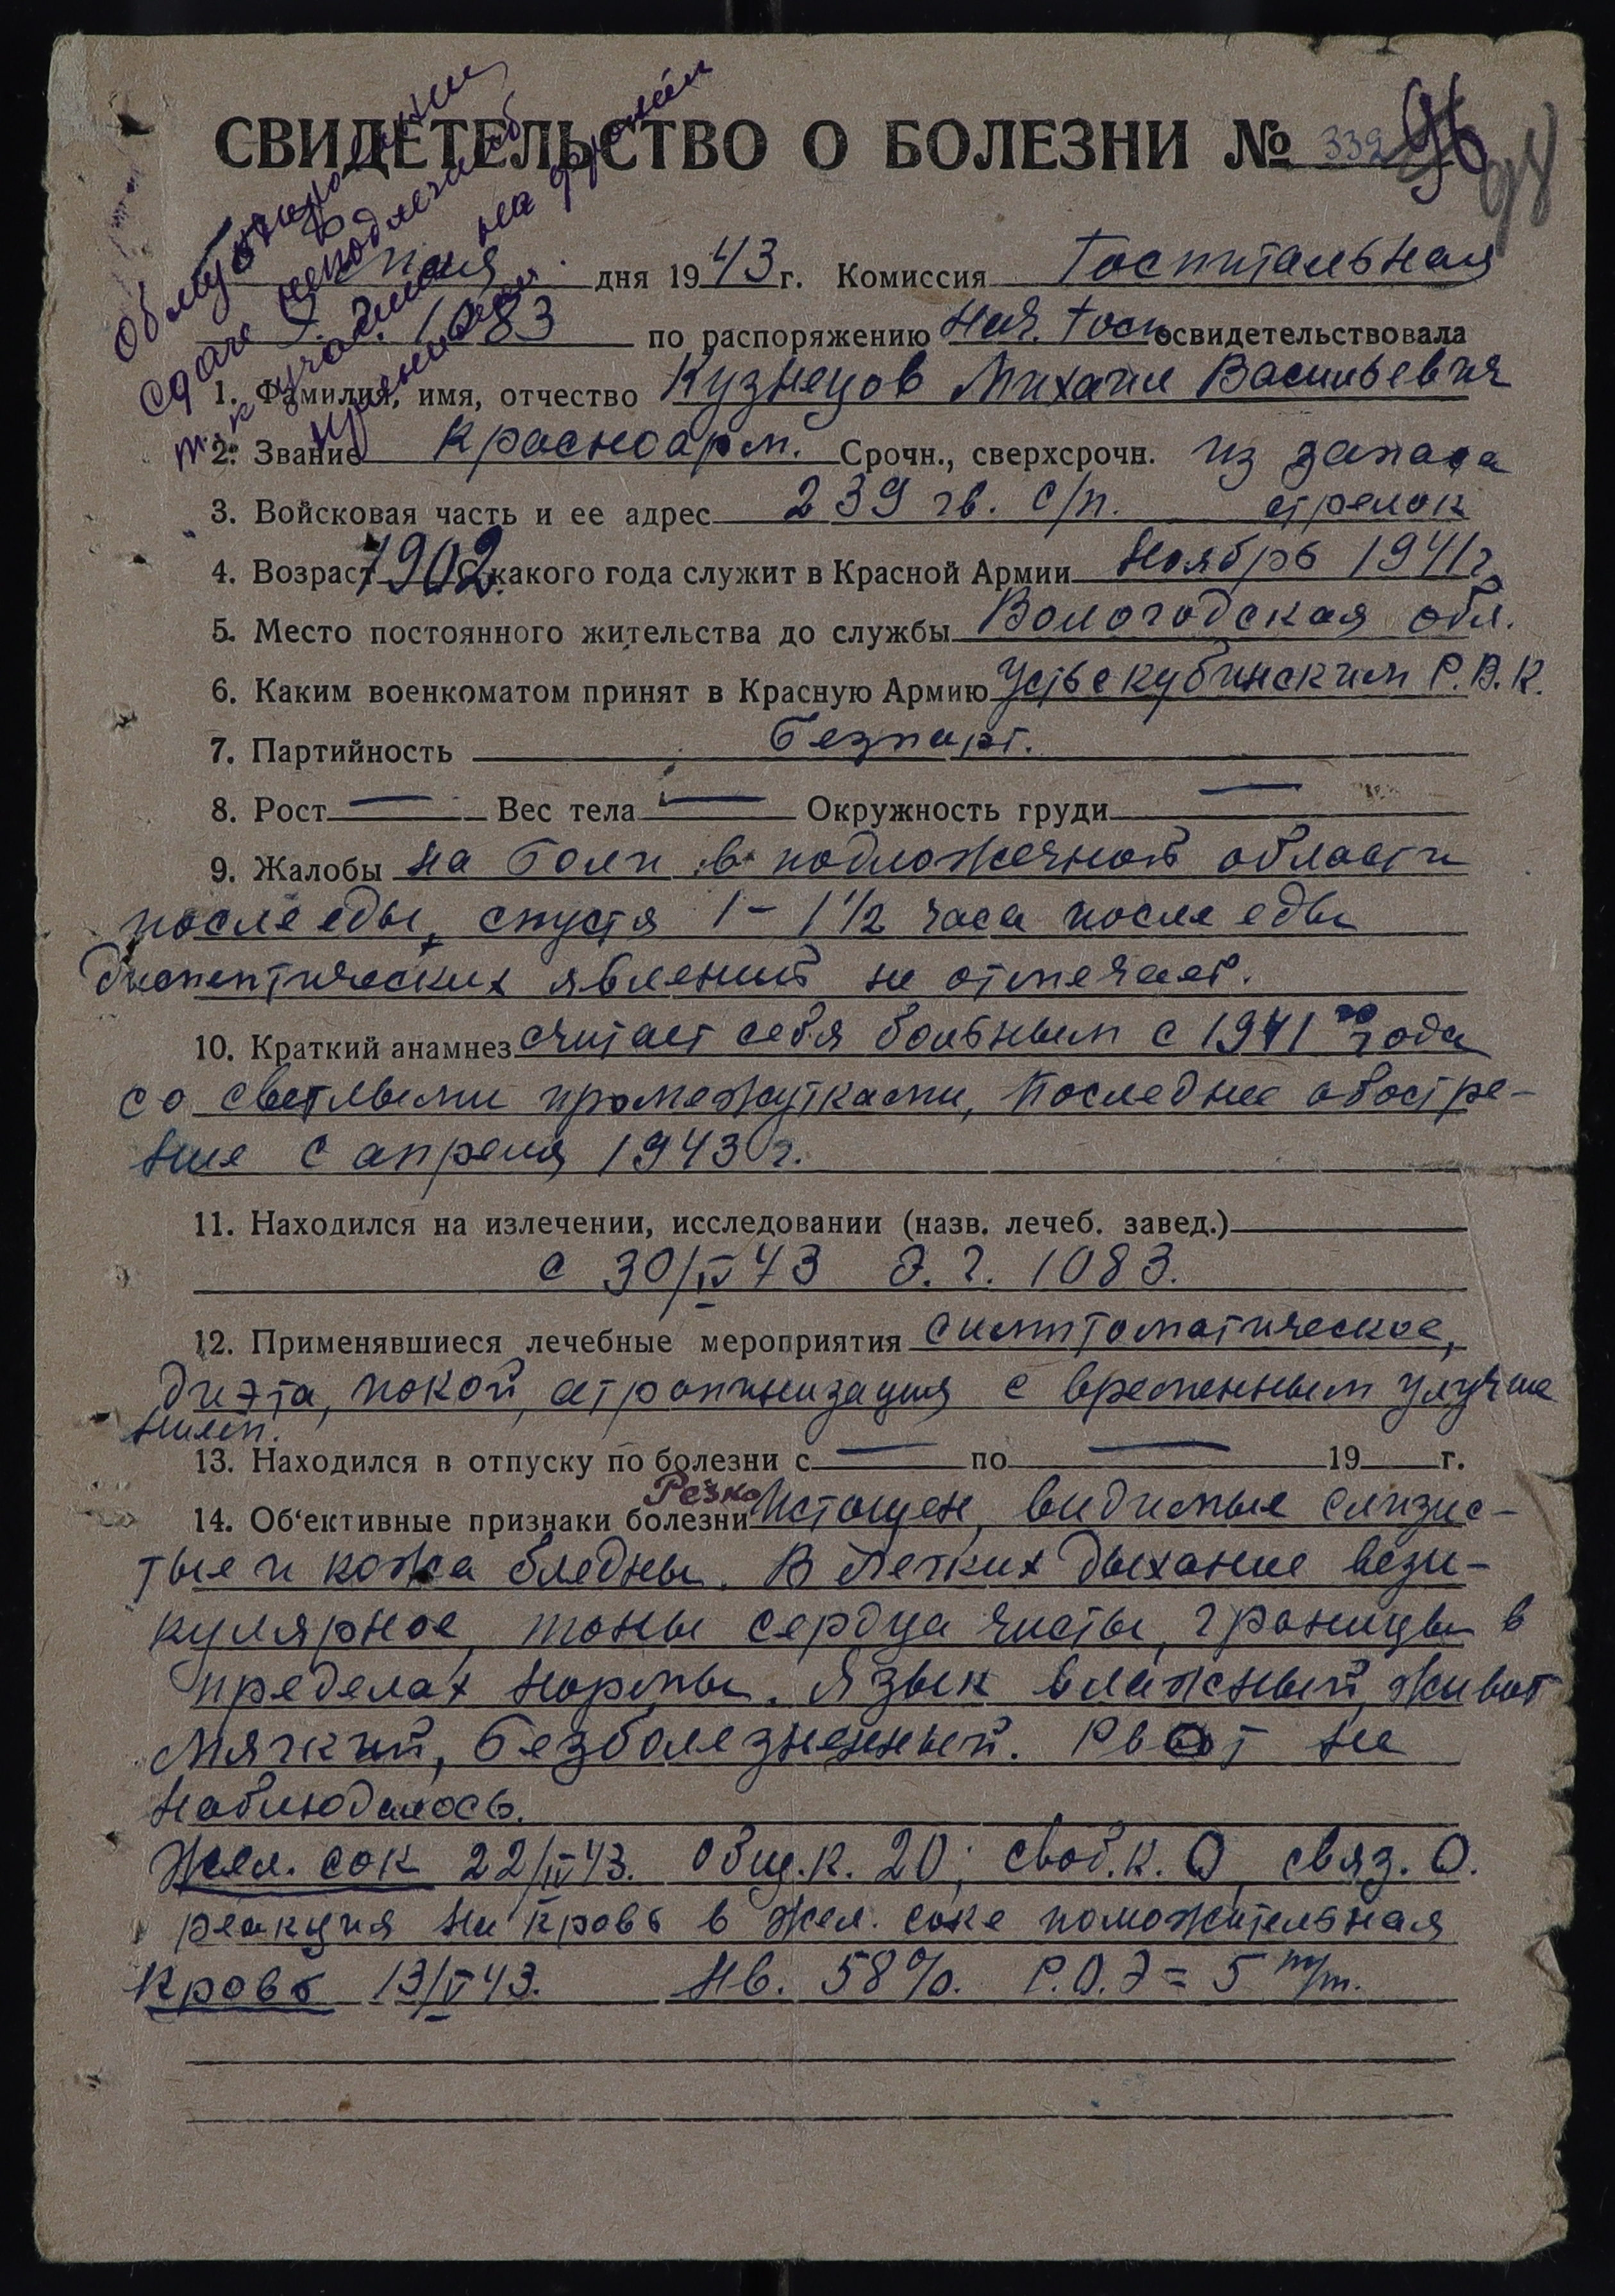 СВИДЕТЕЛЬСТВО О БОЛЕЗНИ № 339 96
98
Обмундирование
сдаче неподлежит
т. к. участник на фронт
мая дня 1943 г. Комиссия Госпитальная
Э. Г. 1083 по распоряжению Нач. Госп освидетельствовала
1. Фамилия, имя, отчество Кузнецов Михаил Васильевич
2. Звание Красноарм. Срочн., сверхсрочн. из запаса
3. Войсковая часть и ее адрес 239 гв. с/п. стрелок
4. Возраст 1902 с какого года служит в Красной Армии Ноябрь 1941 г.
5. Место постоянного жительства до службы Вологодская обл.
6. Каким военкоматом принят в Красную Армию Устькубинским Р.В.К.
7. Партийность безпарт.
8. Рост — Вес тела — Окружность груди —
9. Жалобы на боли в подложечной области
после еды, спустя 1 – 1 1/2 часа после еды
диспептических явлений не отмечает.
10. Краткий анамнез считает себя больным с 1941 го года
со светлыми промежутками, последнее обостре-
ние с апреля 1943 г.
11. Находился на излечении, исследовании (назв. лечеб. завед.)
с 30/IV 43 Э. Г. 1083.
12. Применявшиеся лечебные мероприятия симптоматическое,
диэта, покой, атропинизация с временным улучше
нием.
13. Находился в отпуску по болезни с — по — 19 г.
14. Об'ективные признаки болезни Резко истощен, видимые слизис-
тые и кожа бледны. В легких дыхание вези-
кулярное, тоны сердца чисты, границы в
пределах нормы. Язык влажный, живот
мягкий, безболезненный. Рвот не
наблюдалось.
Жел. сок 22/IV 43. общ. к. 20; своб. к. 0, связ. 0.
реакция на кровь в жел. соке положительная
Кровь 13/V 43. Нв. 58%. Р.О.Э = 5 m/m.